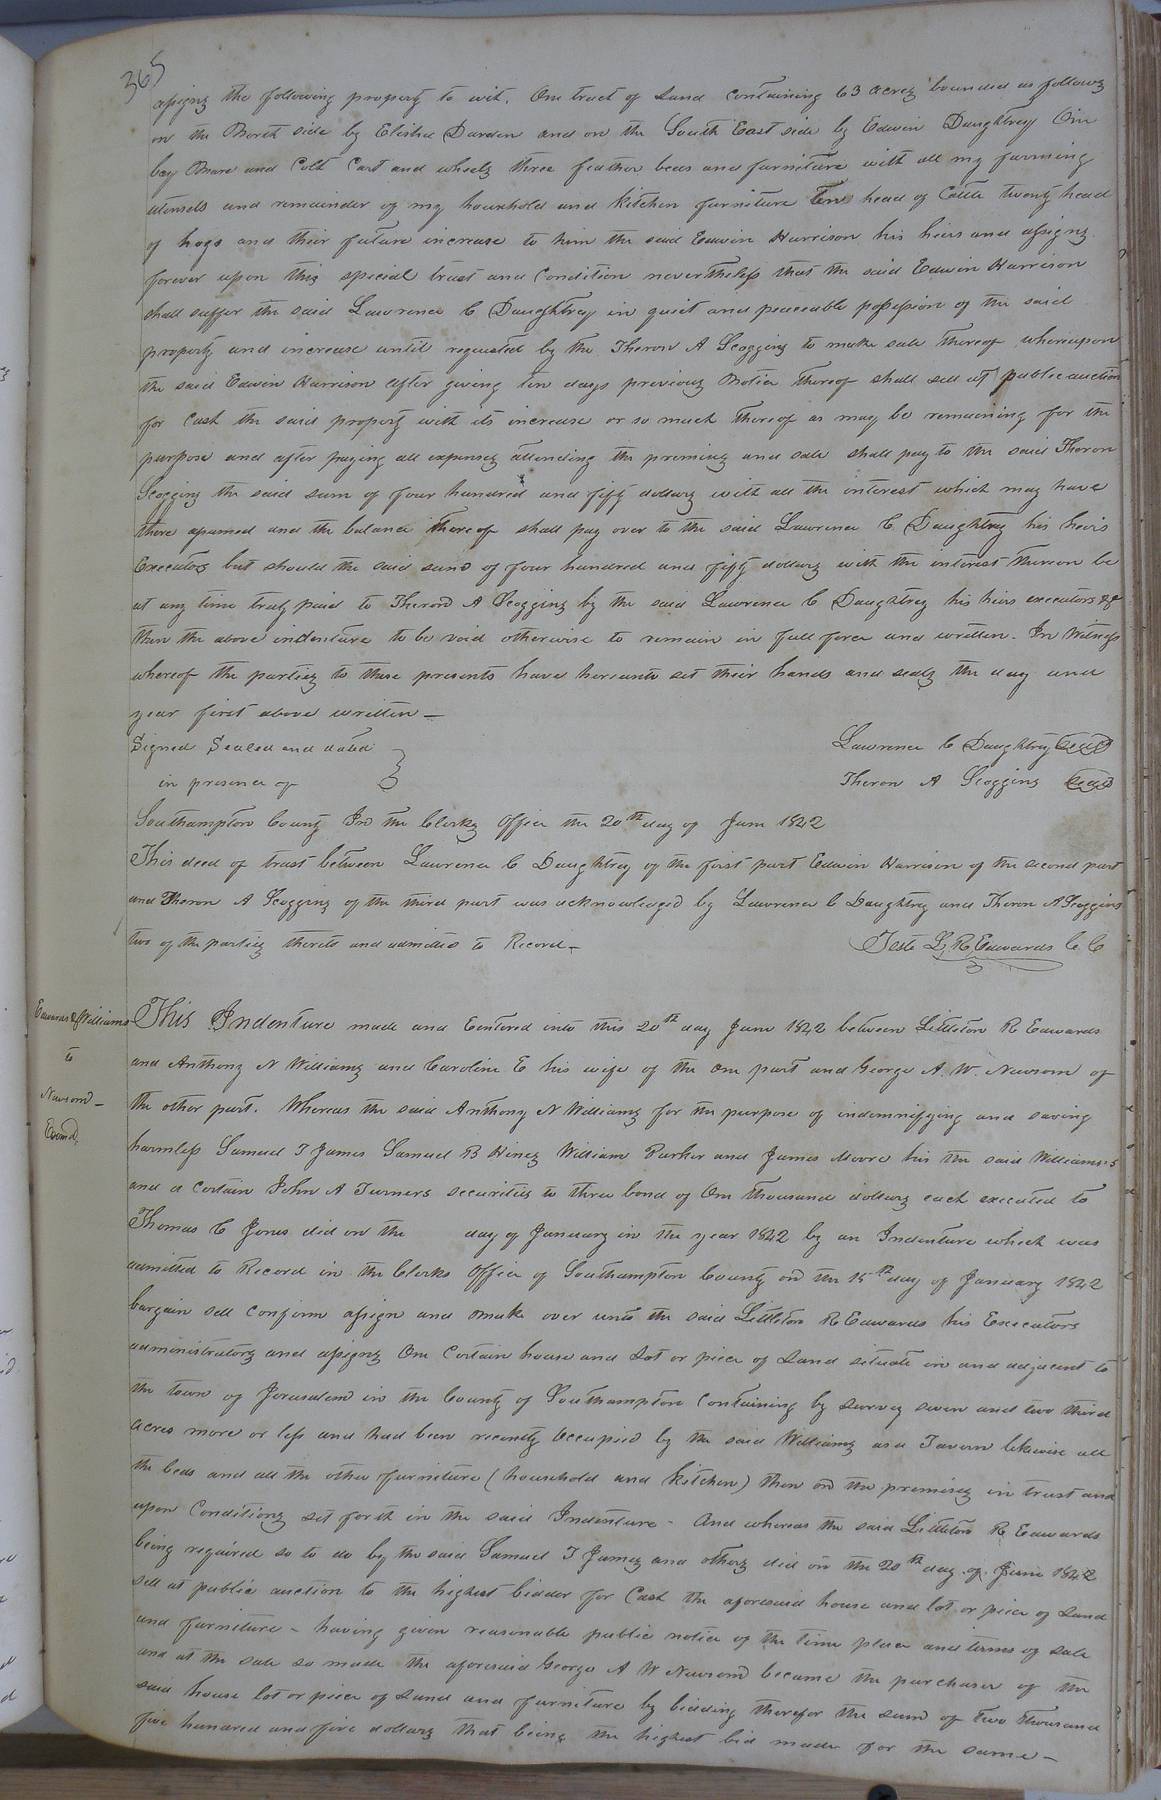 365
assigns the following property to wit. One tract of Land containing 63 acres bounded as follows
on the North side by Elisha Darden and on the South East side by Edwin Daughtrey One
bay Mare and Colt Cart and wheels three feather beds and furniture with all my farming
utensels and remainder of my household and kitchen furniture Ten head of Cattle twenty head
of hogs and their future increase to him the said Edwin Harrison his heirs and assigns
forever upon this special trust and condition nevertheless that the said Edwin Harrison
shall suffer the said Lawrence C Daughtrey in quiet and peaceable possession of the said
property and increase until requested by the Theron A Scoggins to make sale thereof whereupon
the said Edwin Harrison after giving ten days previous Notice thereof shall sell at public auction
for Cash the said property with its increase or so much thereof as may be remaining for the
purpose and after paying all expenses attending the premises and sale shall pay to the said Theron
Scoggins the said sum of four hundred and fifty dollars with all the interest which may have
there and the balance thereof shall pay over to the said Lawrence C Daughtrey his heirs
Executors but should the said sum of four hundred and fifty dollars with the interest thereon be
at any time truly paid to Theron A Scoggins by the said Lawrence C Daughtrey his heirs executors &c
then the above indenture to be void otherwise to remain in full force and written. In Witness
whereof the parties to these presents have hereunto set their hands and seals the day and
year first above written —
Signed Sealed and dated } Lawrence C Daughtrey Seal
in presence of Theron A Scoggins Seal
Southampton County In the Clerks Office the 20th day of June 1842
This deed of trust between Lawrence C Daughtrey of the first part Edwin Harrison of the second part
and Theron A Scoggins of the third part was acknowledged by Lawrence C Daughtrey and Theron A Scoggins
two of the parties thereto and admitted to Record —
Teste L. R. Edwards C C
Edwards & Williams
to
Newsom —
Exmd.
This Indenture made and Entered into this 20th day June 1842 between Littleton R Edwards
and Anthony N Williams and Caroline E his wife of the one part and George A. W. Newsom of
the other part. Whereas the said Anthony N Williams for the purpose of indemnifying and saving
harmless Samuel T James Samuel B Hines William Parker and James Moore his the said Williams's
and a certain John A Turners securities to three bond of One thousand dollars each executed to
Thomas C Jones did on the day of January in the year 1842 by an Indenture which was
admitted to Record in the Clerks Office of Southampton County on the 15th day of January 1842
bargain sell confirm assign and make over unto the said Littleton R Edwards his Executors
administrators and assigns One Certain house and Lot or piece of Land situate in and adjacent to
the town of Jerusalem in the County of Southampton Containing by survey seven and two third
acres more or less and had been recently occupied by the said Williams as a Tavern likewise all
the beds and all the other furniture (household and kitchen) then on the premises in trust and
upon Conditions set forth in the said Indenture – And whereas the said Littleton R Edwards
being required so to do by the said Samuel T James and others did on the 20th day of June 1842
sell at public auction to the highest bidder for Cash the aforesaid house and lot or piece of Land
and furniture – having given reasonable public notice of the time place and terms of sale
and at the sale so made the aforesaid George A W Newsom became the purchaser of the
said house lot or piece of Land and furniture by bidding therefor the sum of Two Thousand
five hundred and five dollars that being the highest bid made for the same —